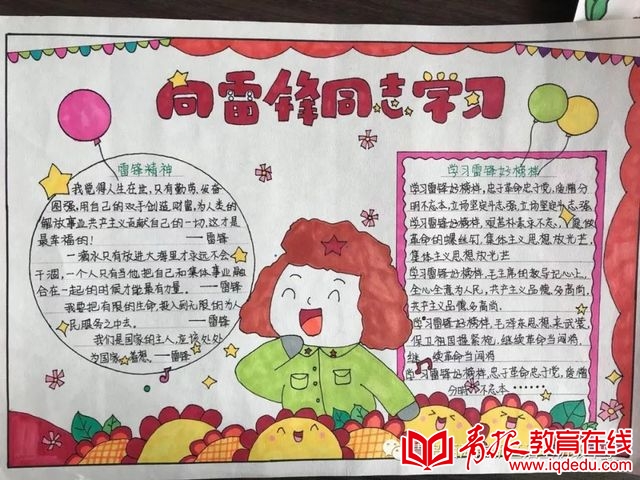 向雷锋同志学习
雷锋精神
我觉得人生在世,只有勤劳,发奋
图强,用自己的双手创造财富,为人类的
解放事业共产主义贡献自己的一切,这才是
最幸福的!——雷锋
一滴水只有放进大海里才永远不会
干涸,一个人只有当他把自己和集体事业融
合在一起的时候才能最有力量。——雷锋
我要把有限的生命,投入到无限的为人
民服务之中去。——雷锋
我们是国家的主人,应该处处
为国家着想。—雷锋
学习雷锋好榜样
学习雷锋好榜样,忠于革命忠于党,爱憎分
明不忘本,立场坚定斗志强,立场坚定斗志强.
学习雷锋好榜样,艰苦朴素永不忘,愿做
革命的螺丝钉,集体主义思想放光芒,
集体主义思想放光芒.
学习雷锋好榜样,毛主席的教导记心上,
全心全意为人民,共产主义品德多高尚,
共产主义品德多高尚.
学习雷锋好榜样,毛泽东思想来武装,
保卫祖国握紧枪,继续革命当闯将,
继续革命当闯将
学习雷锋好榜样,忠于革命忠于党,爱憎
分明不忘本……
青报教育在线
www.iqdedu.com